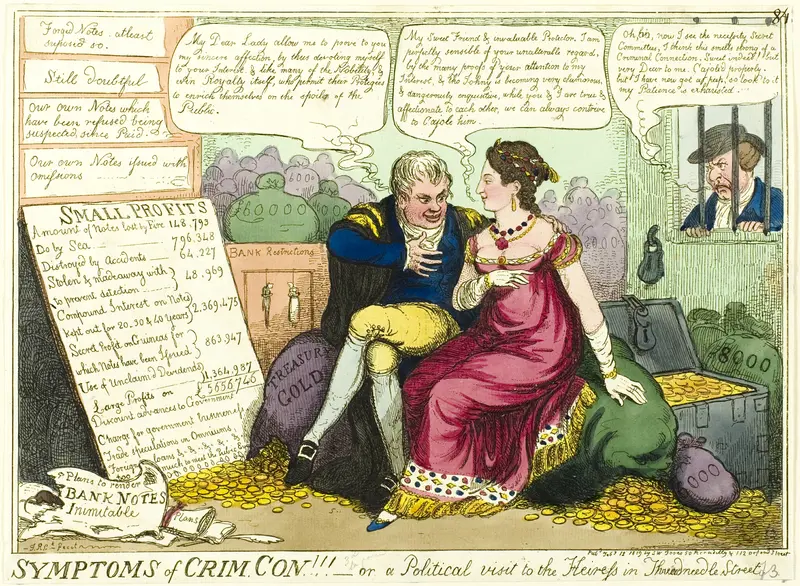 84
Forged Notes - atleast
suposed so.
Still doubtful
Our own Notes which
have been refused being
suspected, since Paid.
Our own Notes issued with
omissions
My Dear Lady allow me to prove to you
my sincere affection, by thus devoting myself
to your Interest, & like many of the Nobility, &
even Royalty itself, who permit their Protegés
to enrich themselves on the spoils of the
Public.
My Sweet Friend & invaluable Protector, I am
perfectly sensible of your unalterable regard,
by the many proofs of your attention to my
Interest, & the Johnny is becoming very clamorous,
& dangerously enquisitive, while you & I are true &
affectionate to each other, we can always contrive
to Cajole him.
Oh, ho, now I see the necessity Secret
Committees, I think this smells strong of a
Criminal Connection, Sweet indeed! but
very Dear to me. Cajoled properly
but I have now got a peep, so look to it
my Patience is exhausted.
SMALL PROFITS
Amount of Notes lost by Fire 148,793
Do by Sea 796,348
Distroyed by Accidents 64,227
Stolen & madeaway with
to prevent detection 48,969
Compound Interest on Notes
kept out for 20-30 & 40 Years 2,369,475
Secret Profit on Guineas for
which Notes have been Issued 863,947
Use of Unclaim'd Dividends 1,364,987
£5656746
Large Profits on
Discount advances to Government
Charge for government business
Trade speculations in Omniums
Foreign Loans &c &c &c
£60000
6000
BANK Restrictions
TREASURY
GOLD
£8000
000
Plans to render
BANK NOTES
Inimitable
Plans
I.R.C. fecit
Pubd Feby 12 1819 by JW Jones 50 Piccadilly & 112 Oxford Street
SYMPTOMS of CRIM. CON!!! or a Political visit to the Heiress in Threadneedle Street,